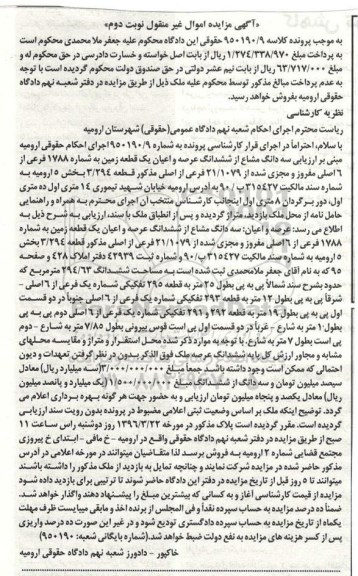 «آگهی مزایده اموال غیر منقول نوبت دوم»
به موجب پرونده کلاسه ۹۵۰۱۹۰/۹ حقوقی این دادگاه محکوم علیه جعفر ملا محمدی محکوم است
به پرداخت مبلغ ۱/۲۷۴/۳۳۸/۹۷۰ ریال از بابت اصل خواسته و خسارت دادرسی در حق محکوم له و
مبلغ ۶۳/۷۱۷/۰۰۰ ریال از بابت نیم عشر دولتی در حق صندوق دولت محکوم گردیده است با توجه
به عدم پرداخت مبالغ مذکور توسط محکوم علیه ملک ذیل از طریق مزایده در دفتر شعبه نهم دادگاه
حقوقی ارومیه بفروش خواهد رسید.
نظریه کارشناسی
ریاست محترم اجرای احکام شعبه نهم دادگاه عمومی(حقوقی) شهرستان ارومیه
با سلام، احتراماً در اجرای قرار کارشناسی پرونده به شماره ۹۵۰۱۹۰/۹ اجرای احکام حقوقی ارومیه
مبنی بر ارزیابی سه دانگ مشاع از ششدانگ عرصه و اعیان یک قطعه زمین به شماره ۱۷۸۸ فرعی از
۶ اصلی مفروز و مجزی شده از ۲۱/۱۰۷۹ فرعی از اصلی مذکور قطعه ۳/۲۹۴ بخش ۵ ارومیه به
شماره سند مالکیت ۳۱۵۴۲۷ پ/۹۰ به آدرس ارومیه خیابان شهید تیموری ۱۴ متری اول ده متری
اول، دور برگردان ۸ متری اول اینجانب کارشناس منتخب آن اجرای محترم به همراه و راهنمایی
حامل نامه از محل ملک بازدید، متراژ گردیده و پس از انطباق ملک با سند، ارزیابی به شرح ذیل به
اطلاع می رسد: عرصه و اعیان: سه دانگ مشاع از ششدانگ عرصه و اعیان یک قطعه زمین به شماره
۱۷۸۸ فرعی از ۶ اصلی مفروز و مجزی شده از ۲۱/۱۰۷۹ فرعی از اصلی مذکور قطعه ۳/۲۹۴ بخش
۵ ارومیه به شماره سند مالکیت ۳۱۵۴۲۷ پ/۹۰ و شماره ثبت ۴۲۹۳۹ دفتر املاک ۴۲۸ و صفحه
۹۵ که به نام آقای جعفر ملامحمدی ثبت شده است به مساحت ششدانگ ۲۹۴/۶۳ متر مربع که
حدود بشرح سند شمالاً پی به پی بطول ۲۵ متر به قطعه ۲۹۵ تفکیکی شماره یک فرعی از ۶ اصلی -
شرقاً پی به پی بطول ۱۲ متر به قطعه ۲۹۳ تفکیکی شماره یک فرعی از ۶ اصلی جنوباً در دو قسمت
اول پی به پی بطول ۱۹ متر به قطعه ۲۹۲ و ۲۹۱ تفکیکی شماره یک فرعی از ۶ اصلی دوم پی به پی
بطول ۱ متر به شارع - غرباً در دو قسمت اول پی است قوس بیرونی بطول ۷/۸۵ متر به شارع - دوم
پی است بطول ۷ متر به شارع. با توجه به موارد ذکر شده محل استقرار و متراژ و مقایسه محلهای
مشابه و مجاور ارزش کل پایه ششدانگ عرصه ملک فوق الذکر بدون در نظر گرفتن تعهدات و دیون
احتمالی که ممکن است وجود داشته باشد جمعاً مبلغ ۳/۰۰۰/۰۰۰/۰۰۰(سه میلیارد ریال) معادل
سیصد میلیون تومان و سه دانگ از ششدانگ مبلغ ۱/۵۰۰/۰۰۰/۰۰۰(یک میلیارد و پانصد میلیون
ریال) معادل یکصد و پنجاه میلیون تومان ارزیابی و به حضور جهت هر گونه بهره برداری اعلام می
گردد. توضیح اینکه ملک بر اساس وضعیت ثبتی اعلامی مضبوط در پرونده بدون رویت سند ارزیابی
گردیده است. مقرر گردیده است پلاک مذکور در مورخه ۱۳۹۶/۳/۲۲ روز دوشنبه راس ساعت ۱۱
صبح از طریق مزایده در دفتر شعبه نهم دادگاه حقوقی واقع در ارومیه - خ مافی - ابتدای خ پیروزی
مجتمع قضایی شماره ۲ ارومیه به فروش برسد لذا متقاضیان میتوانند در مورخه اعلامی در آدرس
مذکور حاضر شده در مزایده شرکت نمایند و چنانچه تمایل به بازدید از ملک مذکور را داشته باشند
میتوانند تا ۵ روز قبل از تاریخ مزایده در دفتر این دادگاه حاضر شوند تا ترتیبی برای بازدید داده شود
مزایده از قیمت کارشناسی آغاز و به کسانی که بیشترین مبلغ را پیشنهاد دهند واگذار خواهد شد.
ضمناً ده درصد مزایده به حساب سپرده نقداً و فی المجلس از برنده اخذ و مابقی میبایست ظرف مهلت
یکماه از تاریخ مزایده به حساب سپرده دادگستری تودیع شود و در غیر این صورت ده درصد واریزی
پس از کسر هزینه های مزایده به نفع دولت ضبط خواهد شد.(شماره بایگانی شعبه: ۹۵۰۱۹۰)
خاکپور - دادورز شعبه نهم دادگاه حقوقی ارومیه